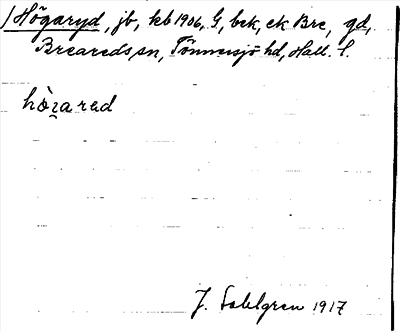 1/Högaryd, jb, kb 1906, G, bek, ek Bre, gd,
Breareds sn, Tönnersjö hd, Hall. l.
hògarad
J. Sahlgren 1917